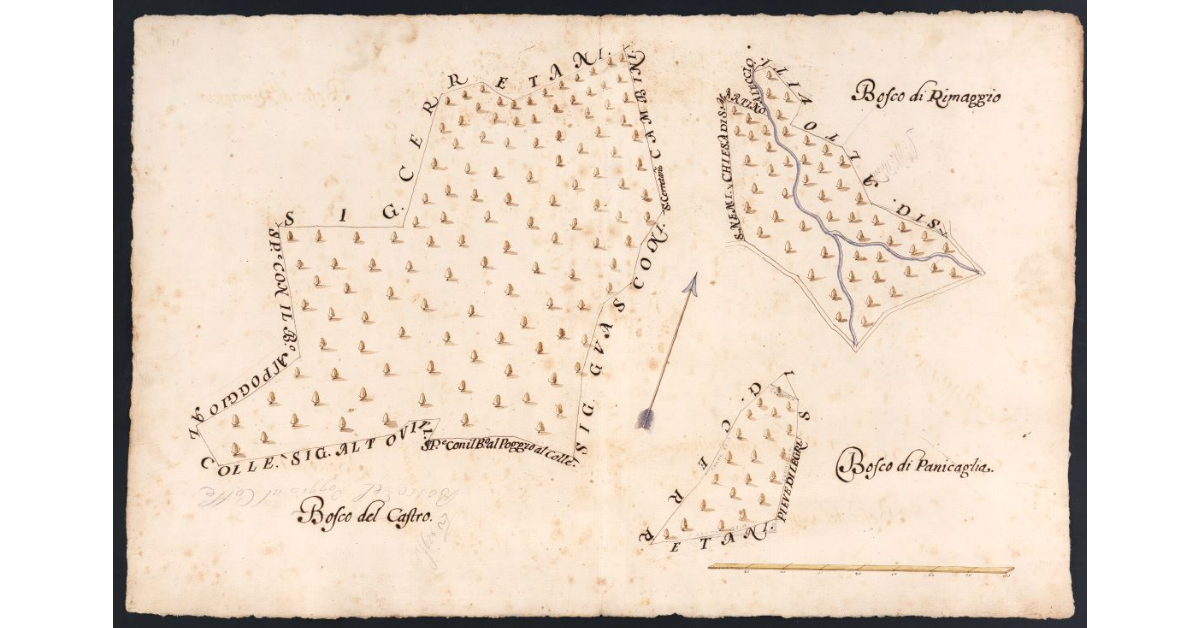 SIG. CERRETANI.
CAMBINI.
S. Cerretani
SIG GVASCONI.
SP.e CON IL B.o AL POGGIO AL
COLLE. SIG. ALTOVITI
SP.e Con il B.o al Poggio al Colle.
Bosco del Castro.
Bosco di Rimaggio
S. NEMI. CHIESA DI S.
MARTINO
SIG. ALTOVITI.
SIG. CERRETANI.
PIEVE DI LEGRI
Bosco di Panicaglia.